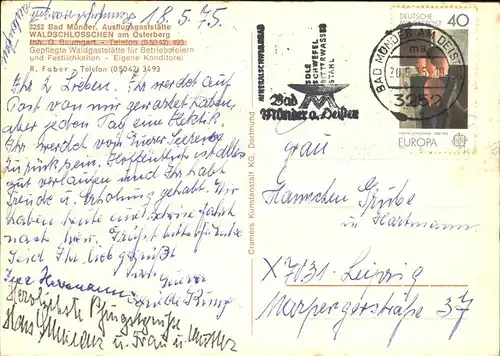 18.5.75.
3252 Bad Münder. Ausflugsgaststätte
WALDSCHLÖSSCHEN am Osterberg
Inh. G. Baumgart - Telefon (05042) 493
Gepflegte Waldgaststätte für Betriebsfeiern
und Festlichkeiten - Eigene Konditorei
R. Faber - Telefon (05042) 3493
Ihr 2 Lieben. Ihr werdet auf
Post von mir gewartet haben,
aber jeden Tag eine Hektik.
Ihr werdet von Eurer Seereise
zurück sein. Hoffentlich ist alles
gut verlaufen und Ihr habt
Freude u. Erholung gehabt. Wir
haben heute eine
nach hier.
Seid Ihr lieb gegrüßt
von Eurer
Herzlichste Pfingstgrüße
Hans u. Frau u. Mutter
Cramers Kunstanstalt KG, Dortmund
MINERALSCHWIMMBAD
SOLE
SCHWEFEL
BITTERWASSER
STAHL
Bad
Münder a. Deister
BAD MÜNDER AM DEISTER
ma
3252
DEUTSCHE BUNDESPOST
40
EUROPA
Frau
Hannchen Grübe
b/ Hartmann
X 7031 Leipzig
Merseburgerstraße 37